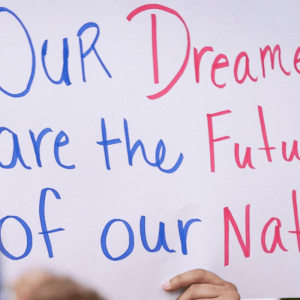 Our Dreame
are the Futu
of our Nat